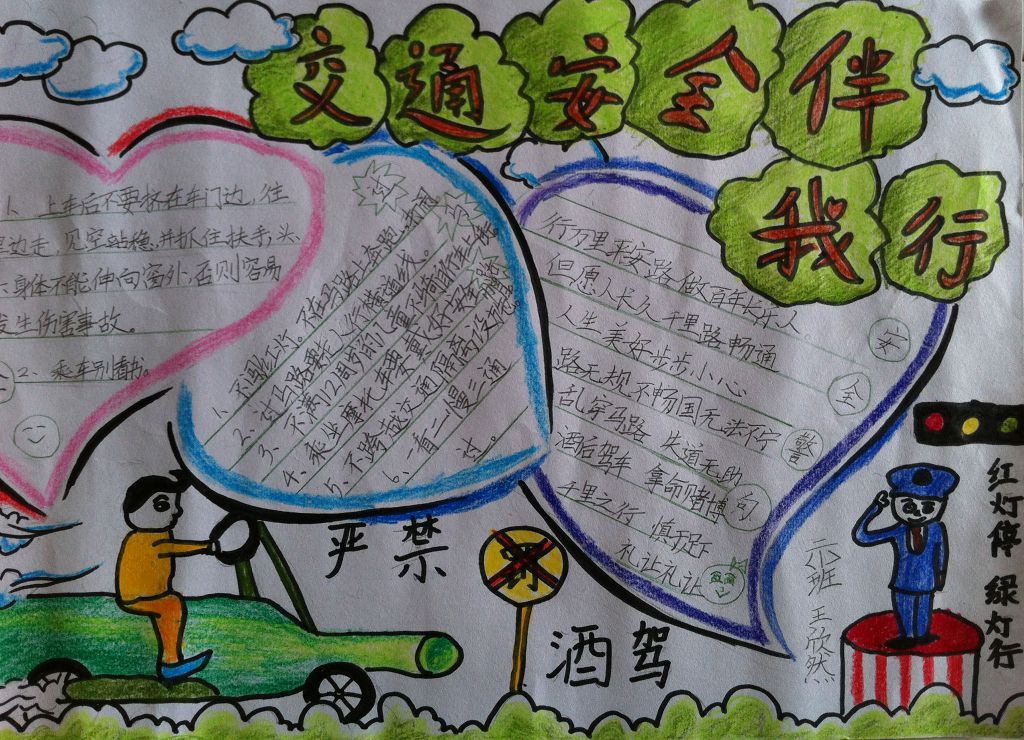 交通安全伴
我行
1、上车后不要挤在车门边，往
里边走，见空站稳，并抓住扶手，头
、身体不能伸向窗外，否则容易
发生伤害事故。
2、乘车别看书。
1、不闯红灯。不在马路上奔跑
3、不满12周岁的儿童不能骑自行车上
4、乘坐摩托车要戴好安全
5、不跨越交通隔离
6、一看二慢三通
过。
行万里平安路 做百年长乐人
但愿人长久 千里路畅通
人生美好步步小心
路无规不畅国无法不宁
乱穿马路 失道无助
酒后驾车 拿命赌博
千里之行 慎于足下
礼让礼让
安
全
警
句
严禁
酒驾
红灯停 绿灯行
王欣然